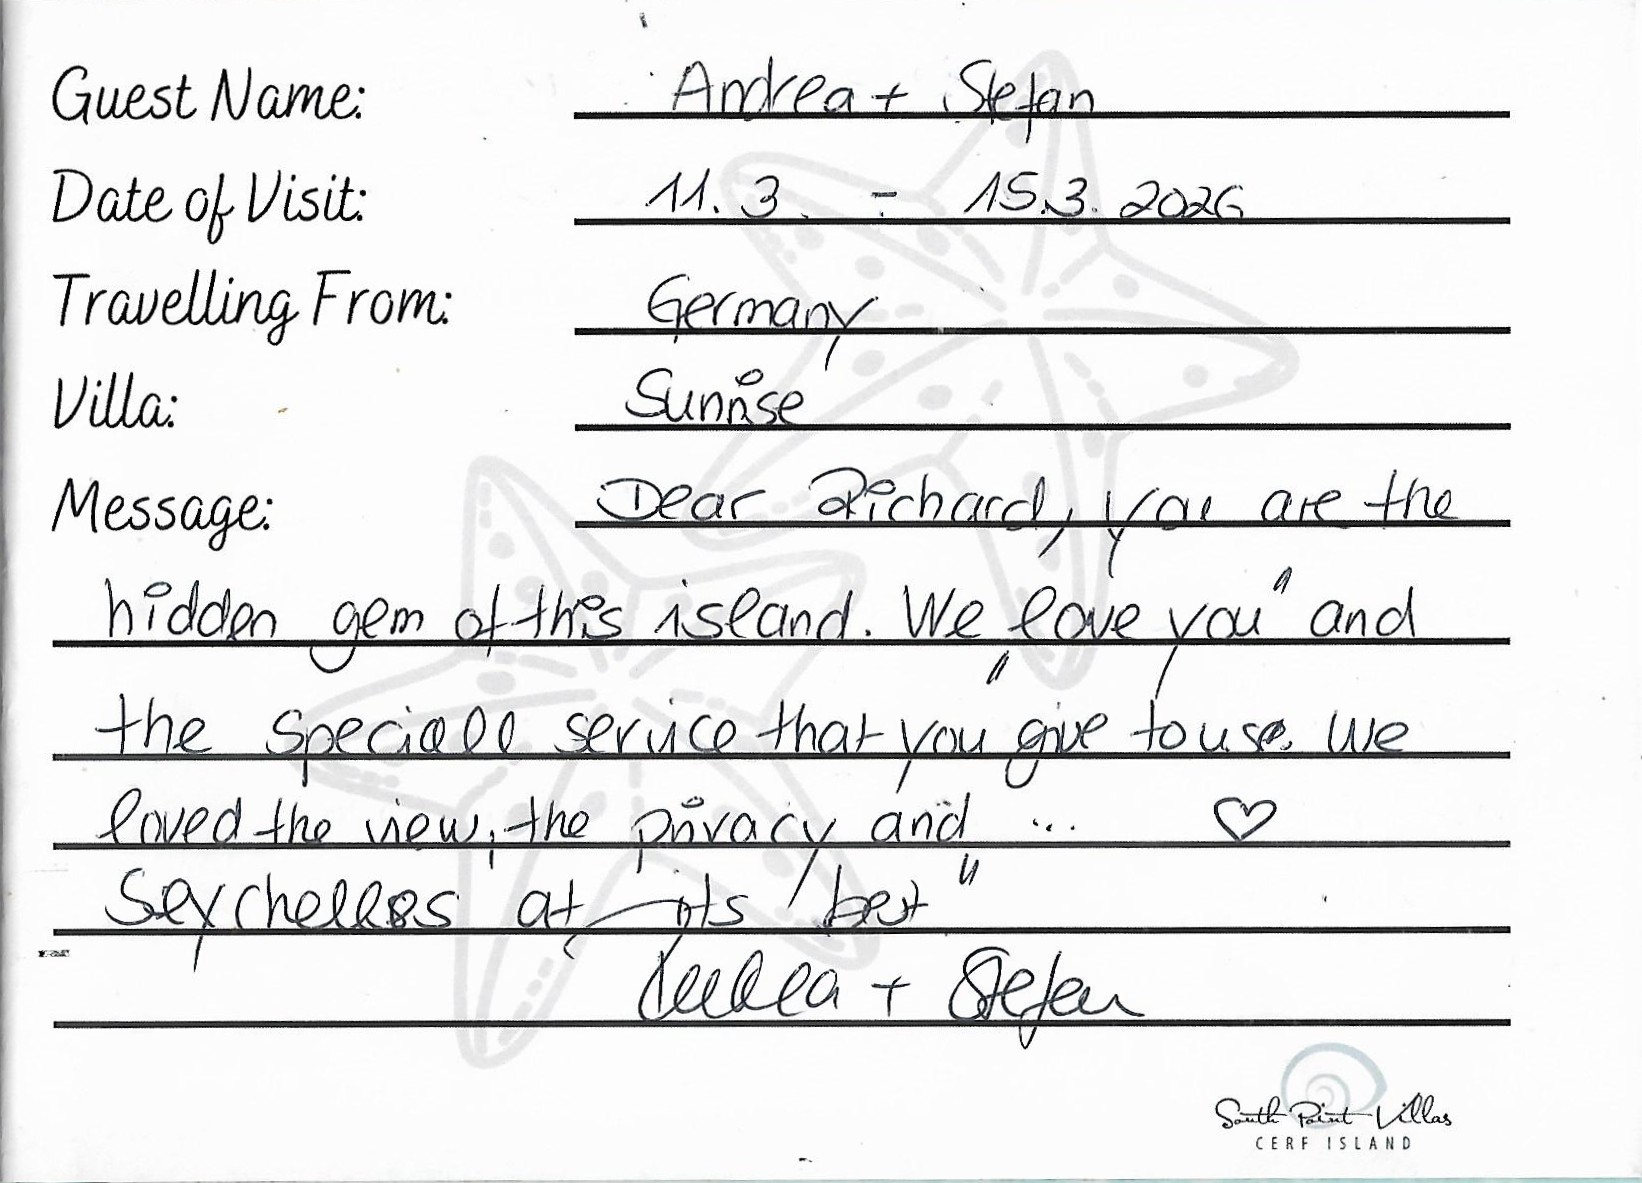 Guest Name: Andrea + Stefan
Date of Visit: 11.3. - 15.3.2026
Travelling From: Germany
Villa: Sunrise
Message: Dear Richard, you are the
hidden gem of this island. We "love you" and
the speciall service that you give to use. We
loved the view, the privacy and ... ♡
Seychelles at its "best"
Andrea + Stefan
South Point Villas
CERF ISLAND